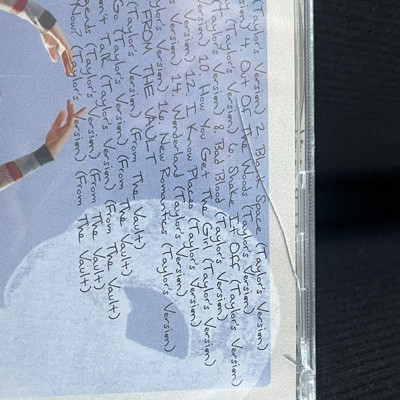 (Taylor's Version) 2. Blank Space (Taylor's Version)
Version) 4. Out Of The Woods (Taylor's Version)
(Taylor's Version) 6. Shake It Off (Taylor's Version)
(Taylor's Version) 8. Bad Blood (Taylor's Version)
Version) 10. How You Get The Girl (Taylor's Version)
Version) 12. I Know Places (Taylor's Version)
Version) 14. Wonderland (Taylor's Version)
Version) 16. New Romantics (Taylor's Version)
FROM THE VAULT
(Taylor's Version) (From The Vault)
Go (Taylor's Version) (From The Vault)
Talk (Taylor's Version) (From The Vault)
(Taylor's Version) (From The Vault)
Now? (Taylor's Version) (From The Vault)